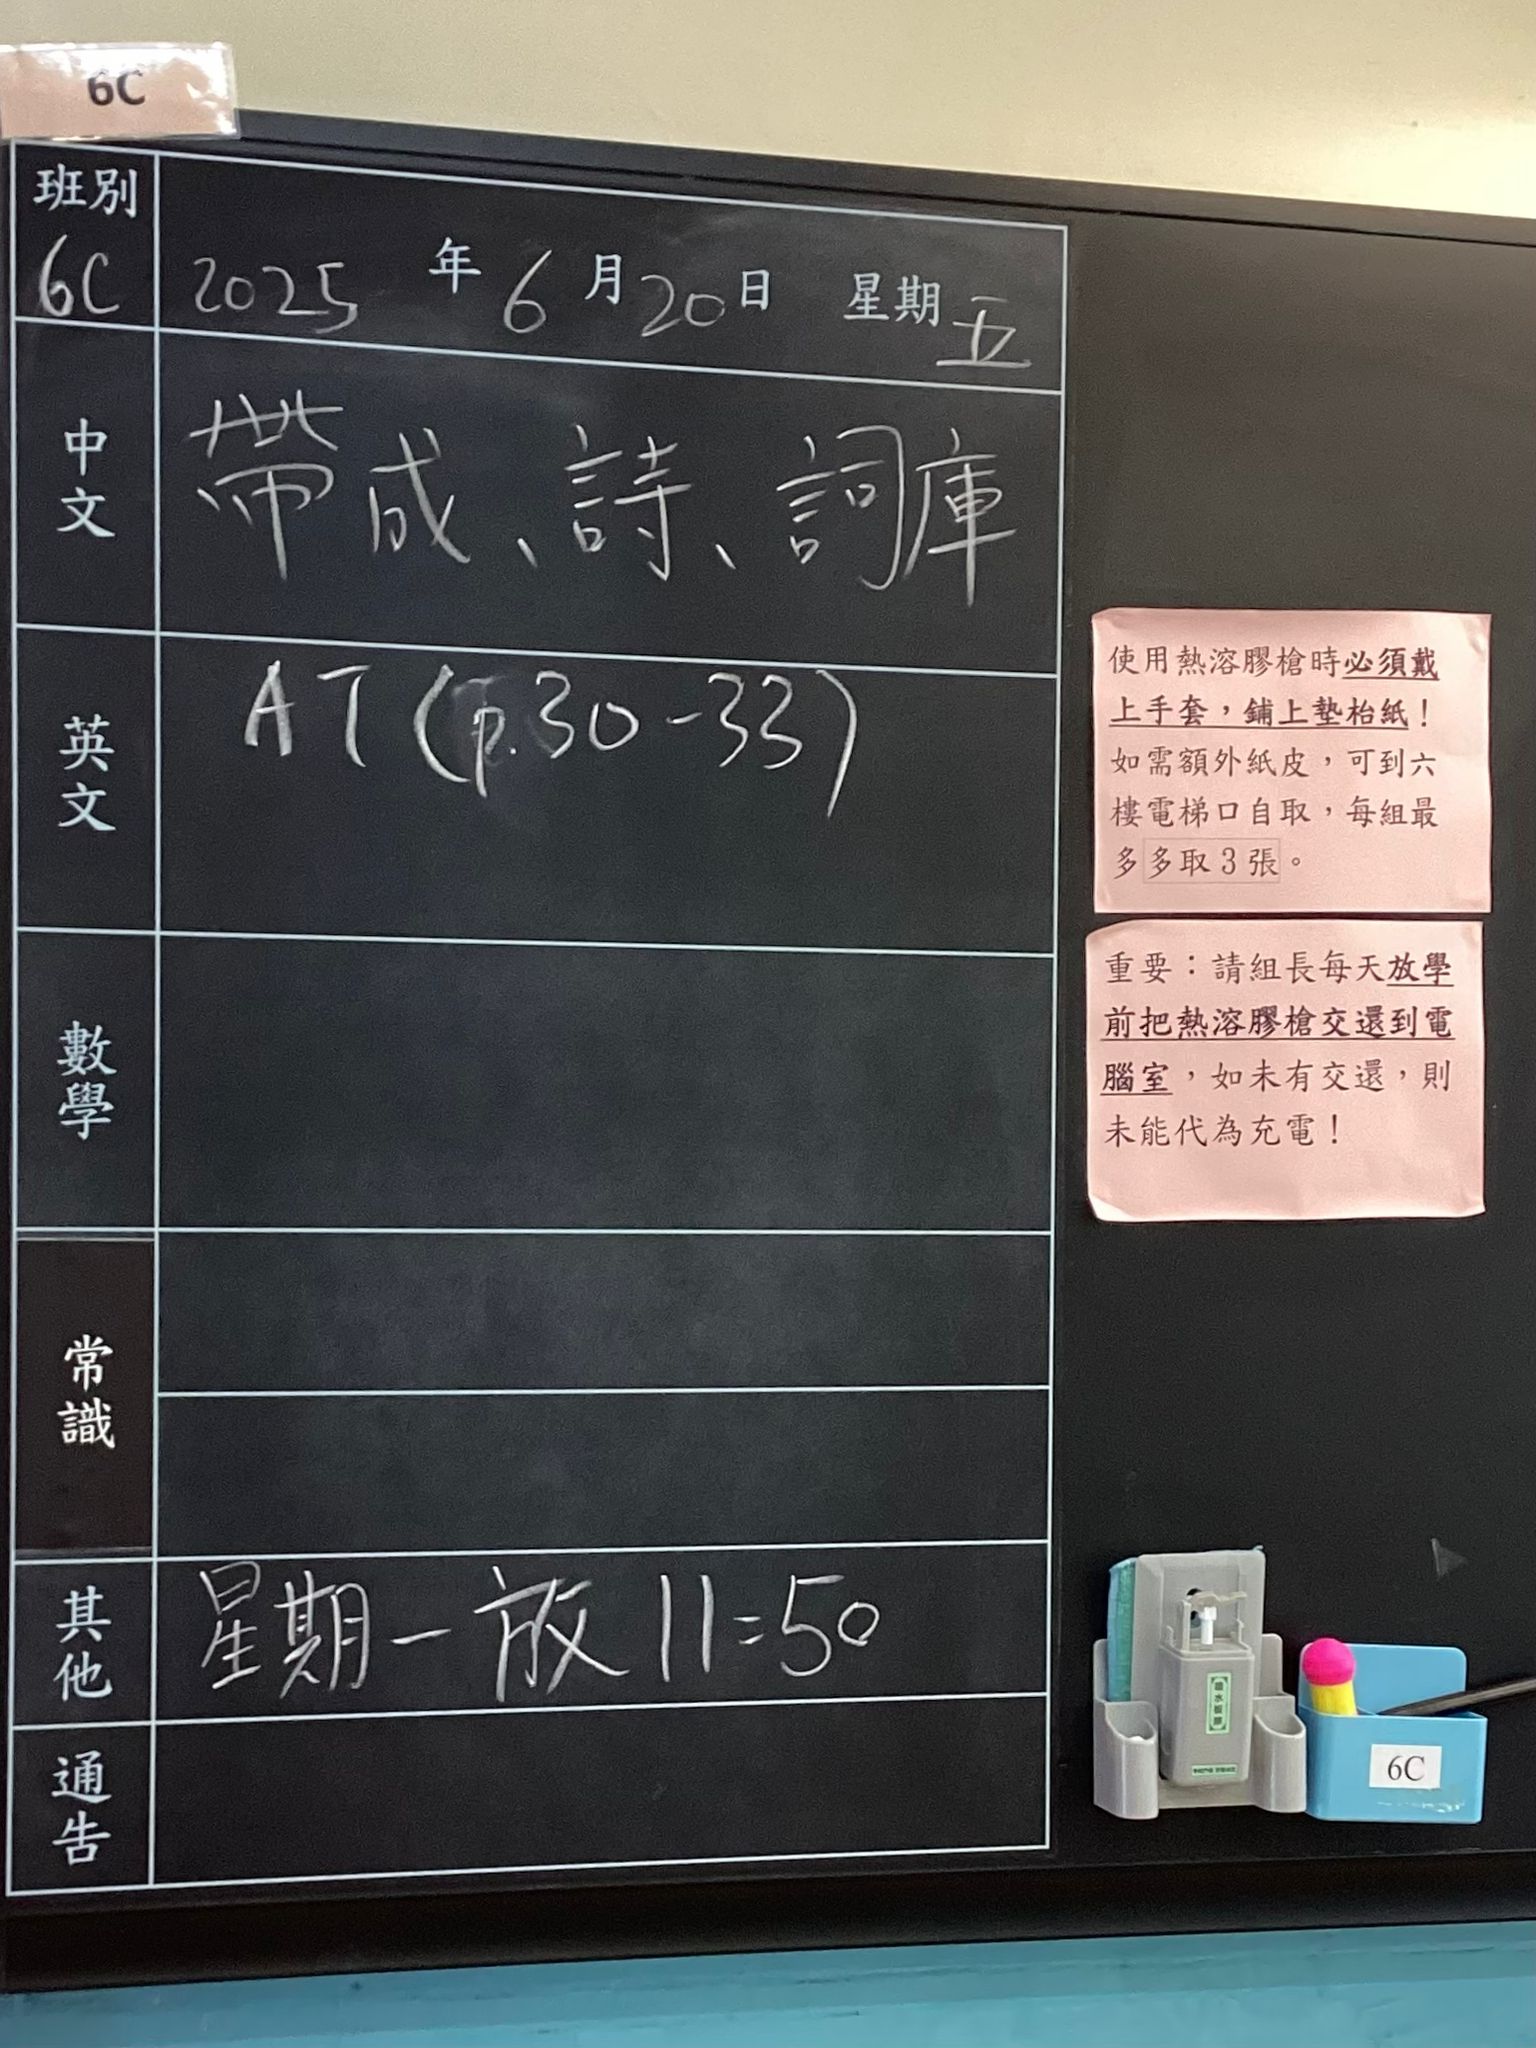 6C
班別
6C
2025 年 6 月 20 日 星期五
中文
帶成、詩、詞庫
英文
AT (p.30-33)
數學
常識
其他
星期一放 11:50
通告
使用熱溶膠槍時必須戴
上手套，鋪上墊枱紙！
如需額外紙皮，可到六
樓電梯口自取，每組最
多多取3張。
重要：請組長每天放學
前把熱溶膠槍交還到電
腦室，如未有交還，則
未能代為充電！
6C